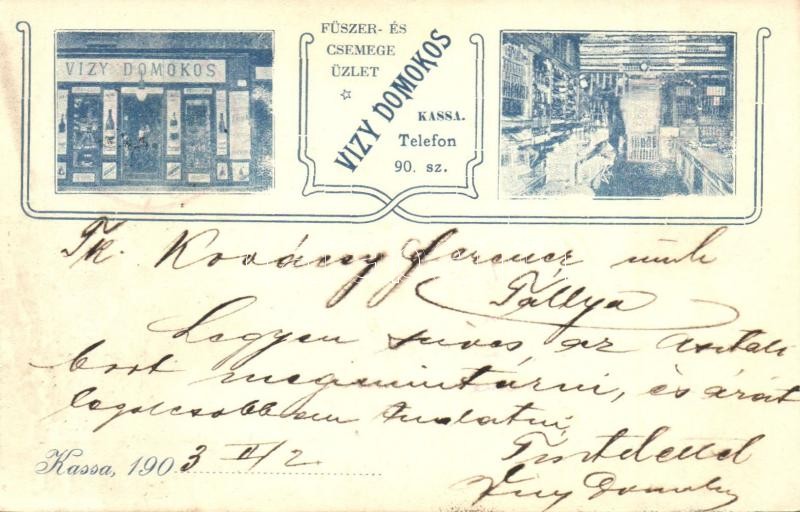 VIZY DOMOKOS
FŰSZER- ÉS
CSEMEGE
ÜZLET
VIZY DOMOKOS
KASSA.
Telefon
90. sz.
Tk. Kováczy Ferencz úrnak
Tállya
Legyen szives az asztali
bort megmintázni, és árát
legolcsobban tudatni,
Tisztelettel
Vizy Domokos
Kassa, 1903 II/2.